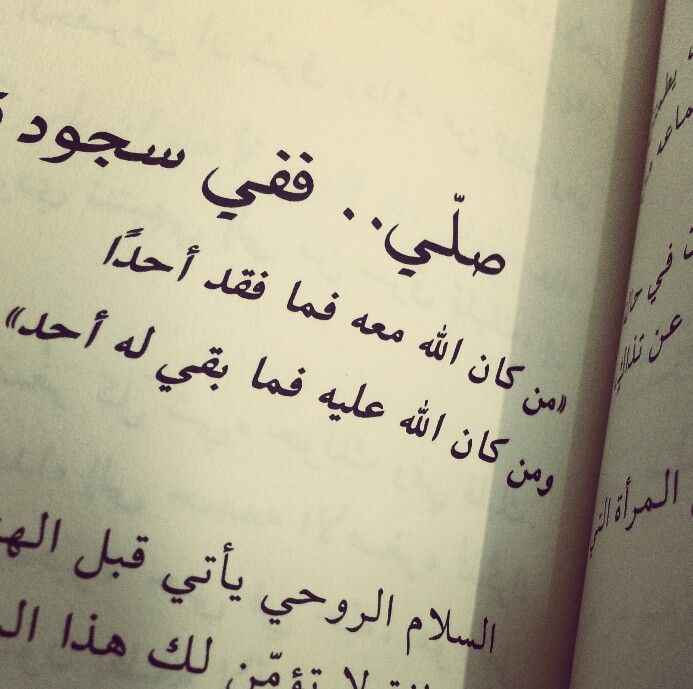 صلّي.. ففي سجود
«من كان الله معه فما فقد أحدًا
ومن كان الله عليه فما بقي له أحد»
السلام الروحي يأتي قبل
لا تؤمّن لك هذا
في
عن
المرأة التي